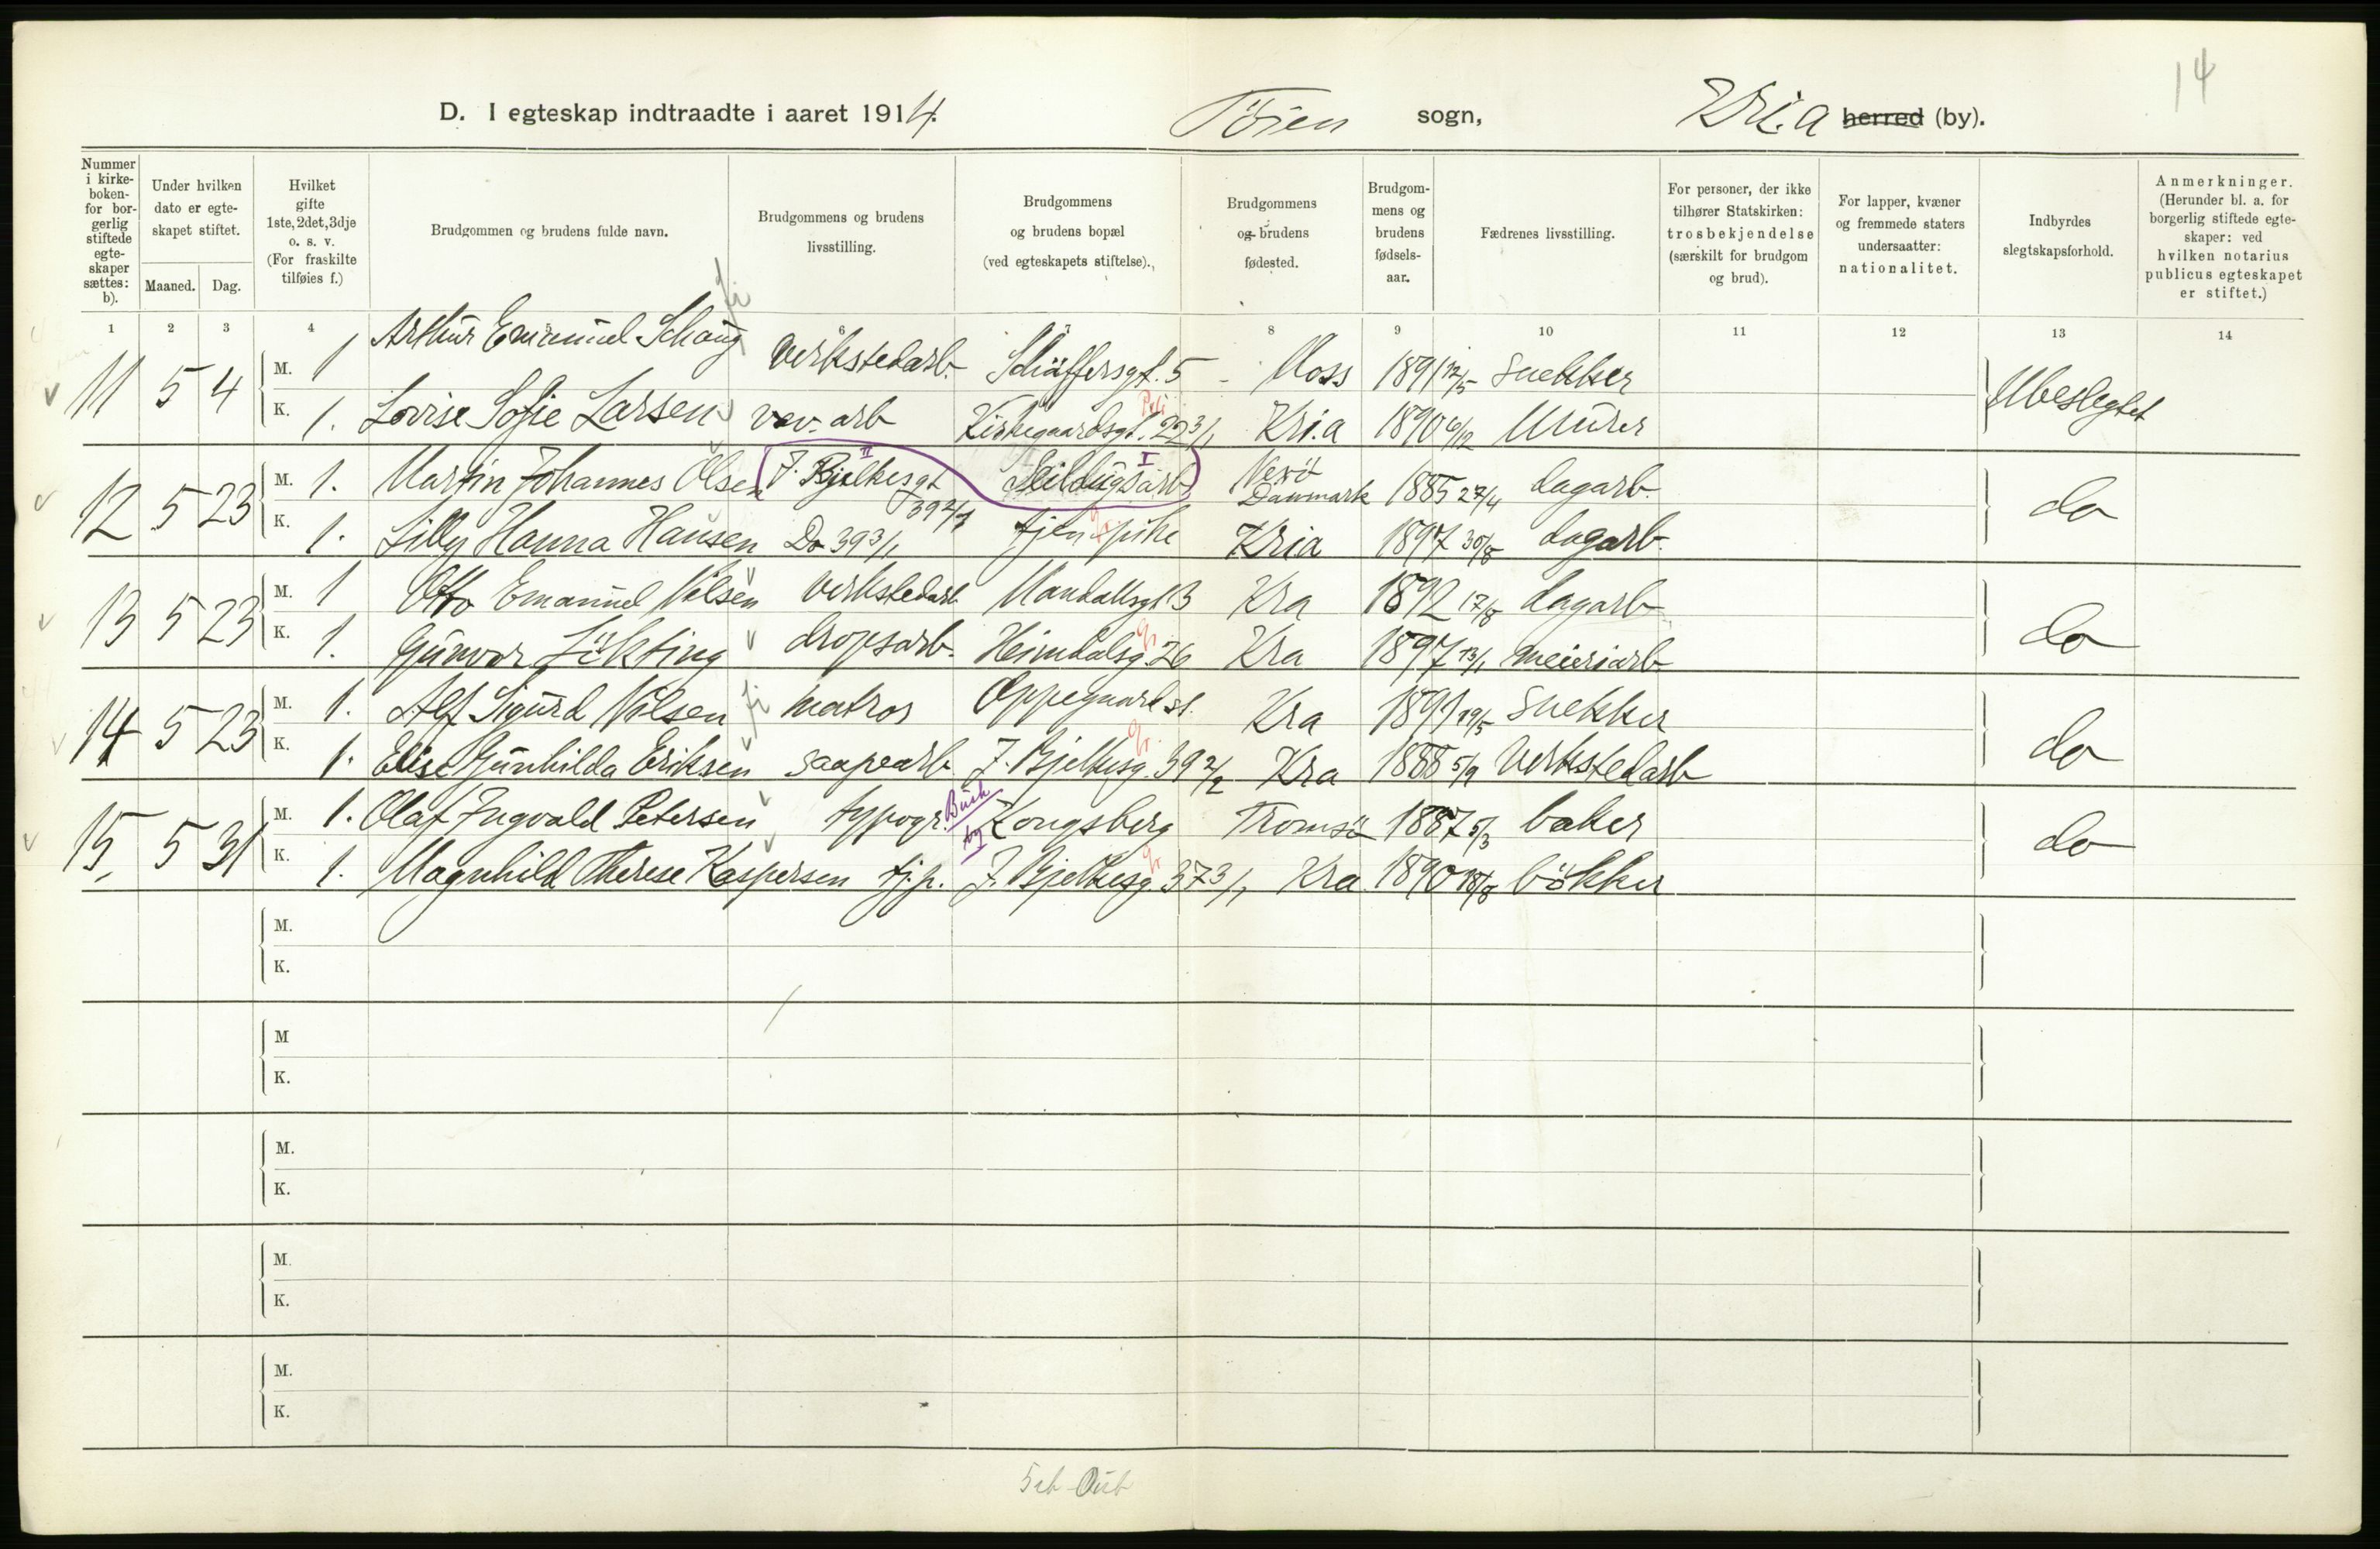 14
D. I egteskap indtraadte i aaret 1914. Töien sogn, Kri.a herred (by).
Nummer i kirke-boken- for bor-gerlig stiftede egte-skaper sættes: b).
Under hvilken dato er egte-skapet stiftet.
Maaned. Dag.
Hvilket gifte 1ste, 2det, 3dje o. s. v. (For fraskilte tilføies f.)
Brudgommen og brudens fulde navn.
Brudgommens og brudens livsstilling.
Brudgommens og brudens bopæl (ved egteskapets stiftelse).
Brudgommens og brudens fødested.
Brudgom-mens og brudens fødsels-aar.
Fædrenes livsstilling.
For personer, der ikke tilhører Statskirken: trosbekjendelse (særskilt for brudgom og brud).
For lapper, kvæner og fremmede staters undersaatter: nationalitet.
Indbyrdes slegtskapsforhold.
Anmerkninger. (Herunder bl. a. for borgerlig stiftede egte-skaper: ved hvilken notarius publicus egteskapet er stiftet.)
1 2 3 4 5 6 7 8 9 10 11 12 13 14
11 5 4 M. 1 Arthur Emanuel Schaug verkstedarb. Schäffersgt. 5 - Moss 1891 12/5 Snekker Ubeslegtet
K. 1. Lovise Sofie Larsen vev. arb Kirkegaardsgt. 22 3/1 Kri.a 1890 6/12 Murer
12 5 23 M. 1. Martin Johannes Olsen J. Bjelkesgt 39 2/1 II Seildugsarb I Nexö Danmark 1885 27/4 dagarb. do
K. 1. Lilly Hanna Hansen Do 39 3/1 tjen. pike Kria 1897 30/8 dagarb.
13 5 23 M. 1 Otto Emanuel Nilsen verkstedarb Mandalsgt 3 Kra 1892 17/8 dagarb do
K. 1. Gunvor Lökting dropsarb. Heimdalsg. 26 Kra 1897 13/1 meieriarb
14 5 23 M. 1. Alf Sigurd Nilsen matros Oppegaard st. Kra 1891 19/5 Snekker do
K. 1. Elise Gunhilda Eriksen saapearb J. Bjelkesg. 39 2/2 Kra 1888 5/9 Verkstedarb
15. 5 31 M. 1. Olaf Ingvald Petersen typogr. Kongsberg Tromsö 1887 5/3 baker do
K. 1. Magnhild Therese Kaspersen tj.p. J. Bjelkesg. 37 3/1 Kra 1890 18/8 bökker
M.
K.
M
K.
M.
K.
M.
K.
M.
K.